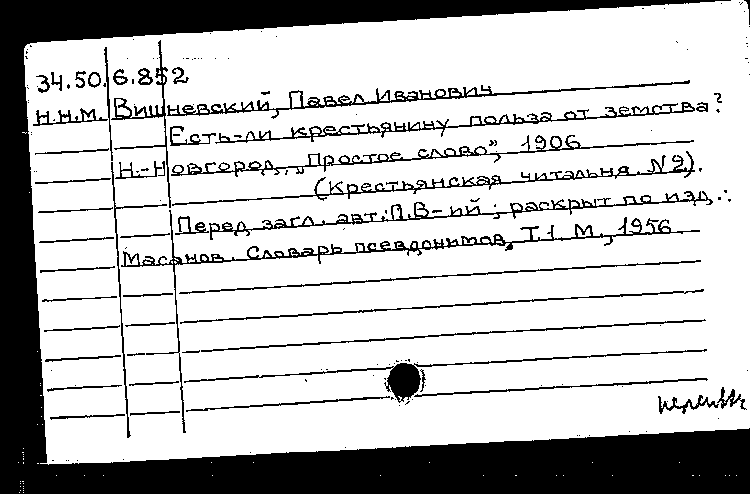 34.50.6.852
Н.Н.М. Вишневский, Павел Иванович
Есть-ли крестьянину польза от земства?
Н.-Новгород, „Простое слово”, 1906
(Крестьянская читальня. N2).
Перед загл. авт.: П.В-ий; раскрыт по изд.:
Масанов. Словарь псевдонимов, Т.1. М., 1956